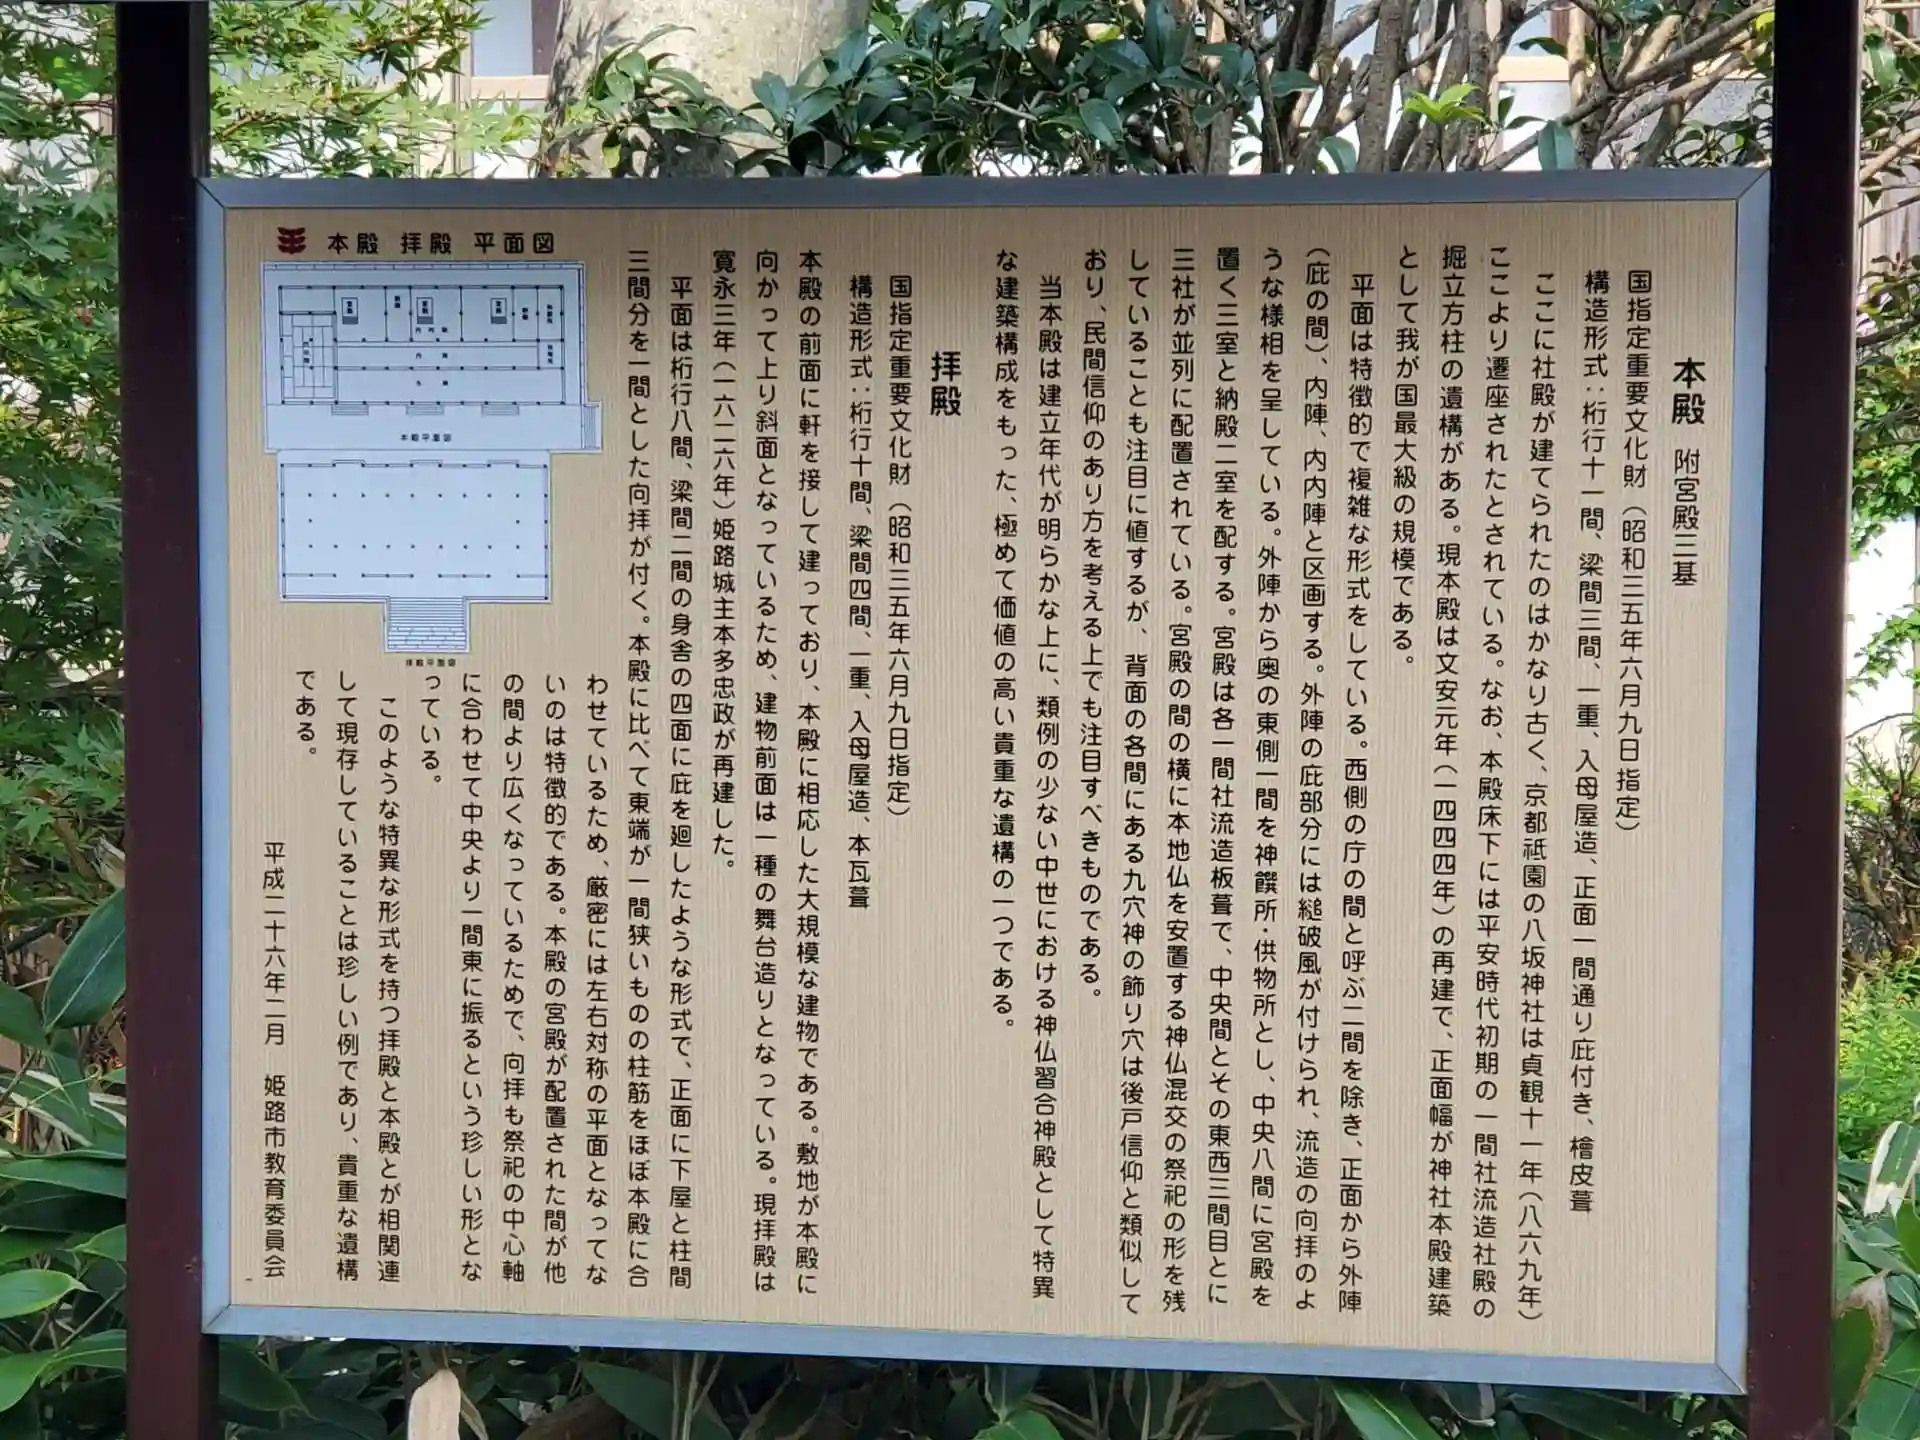 本殿 附宮殿三基
国指定重要文化財（昭和三五年六月九日指定）
構造形式：桁行十一間、梁間三間、一重、入母屋造、正面一間通り庇付き、檜皮葺
ここに社殿が建てられたのはかなり古く、京都祇園の八坂神社は貞観十一年（八六九年）
ここより遷座されたとされている。なお、本殿床下には平安時代初期の一間社流造社殿の
掘立方柱の遺構がある。現本殿は文安元年（一四四四年）の再建で、正面幅が神社本殿建築
として我が国最大級の規模である。
平面は特徴的で複雑な形式をしている。西側の庁の間と呼ぶ二間を除き、正面から外陣
（庇の間）、内陣、内内陣と区画する。外陣の庇部分には縋破風が付けられ、流造の向拝のよ
うな様相を呈している。外陣から奥の東側一間を神饌所・供物所とし、中央八間に宮殿を
置く三室と納殿二室を配する。宮殿は各一間社流造板葺で、中央間とその東西三間目とに
三社が並列に配置されている。宮殿の間の横に本地仏を安置する神仏混交の祭祀の形を残
していることも注目に値するが、背面の各間にある九穴神の飾り穴は後戸信仰と類似して
おり、民間信仰のあり方を考える上でも注目すべきものである。
当本殿は建立年代が明らかな上に、類例の少ない中世における神仏習合神殿として特異
な建築構成をもった、極めて価値の高い貴重な遺構の一つである。
拝殿
国指定重要文化財（昭和三五年六月九日指定）
構造形式：桁行十間、梁間四間、一重、入母屋造、本瓦葺
本殿の前面に軒を接して建っており、本殿に相応した大規模な建物である。敷地が本殿に
向かって上り斜面となっているため、建物前面は一種の舞台造りとなっている。現拝殿は
寛永三年（一六二六年）姫路城主本多忠政が再建した。
平面は桁行八間、梁間二間の身舎の四面に庇を廻したような形式で、正面に下屋と柱間
三間分を一間とした向拝が付く。本殿に比べて東端が一間狭いものの柱筋をほぼ本殿に合
わせているため、厳密には左右対称の平面となってな
いのは特徴的である。本殿の宮殿が配置された間が他
の間より広くなっているためで、向拝も祭祀の中心軸
に合わせて中央より一間東に振るという珍しい形とな
っている。
このような特異な形式を持つ拝殿と本殿とが相関連
して現存していることは珍しい例であり、貴重な遺構
である。
平成二十六年二月 姫路市教育委員会
本殿 拝殿 平面図
本殿平面図
拝殿平面図